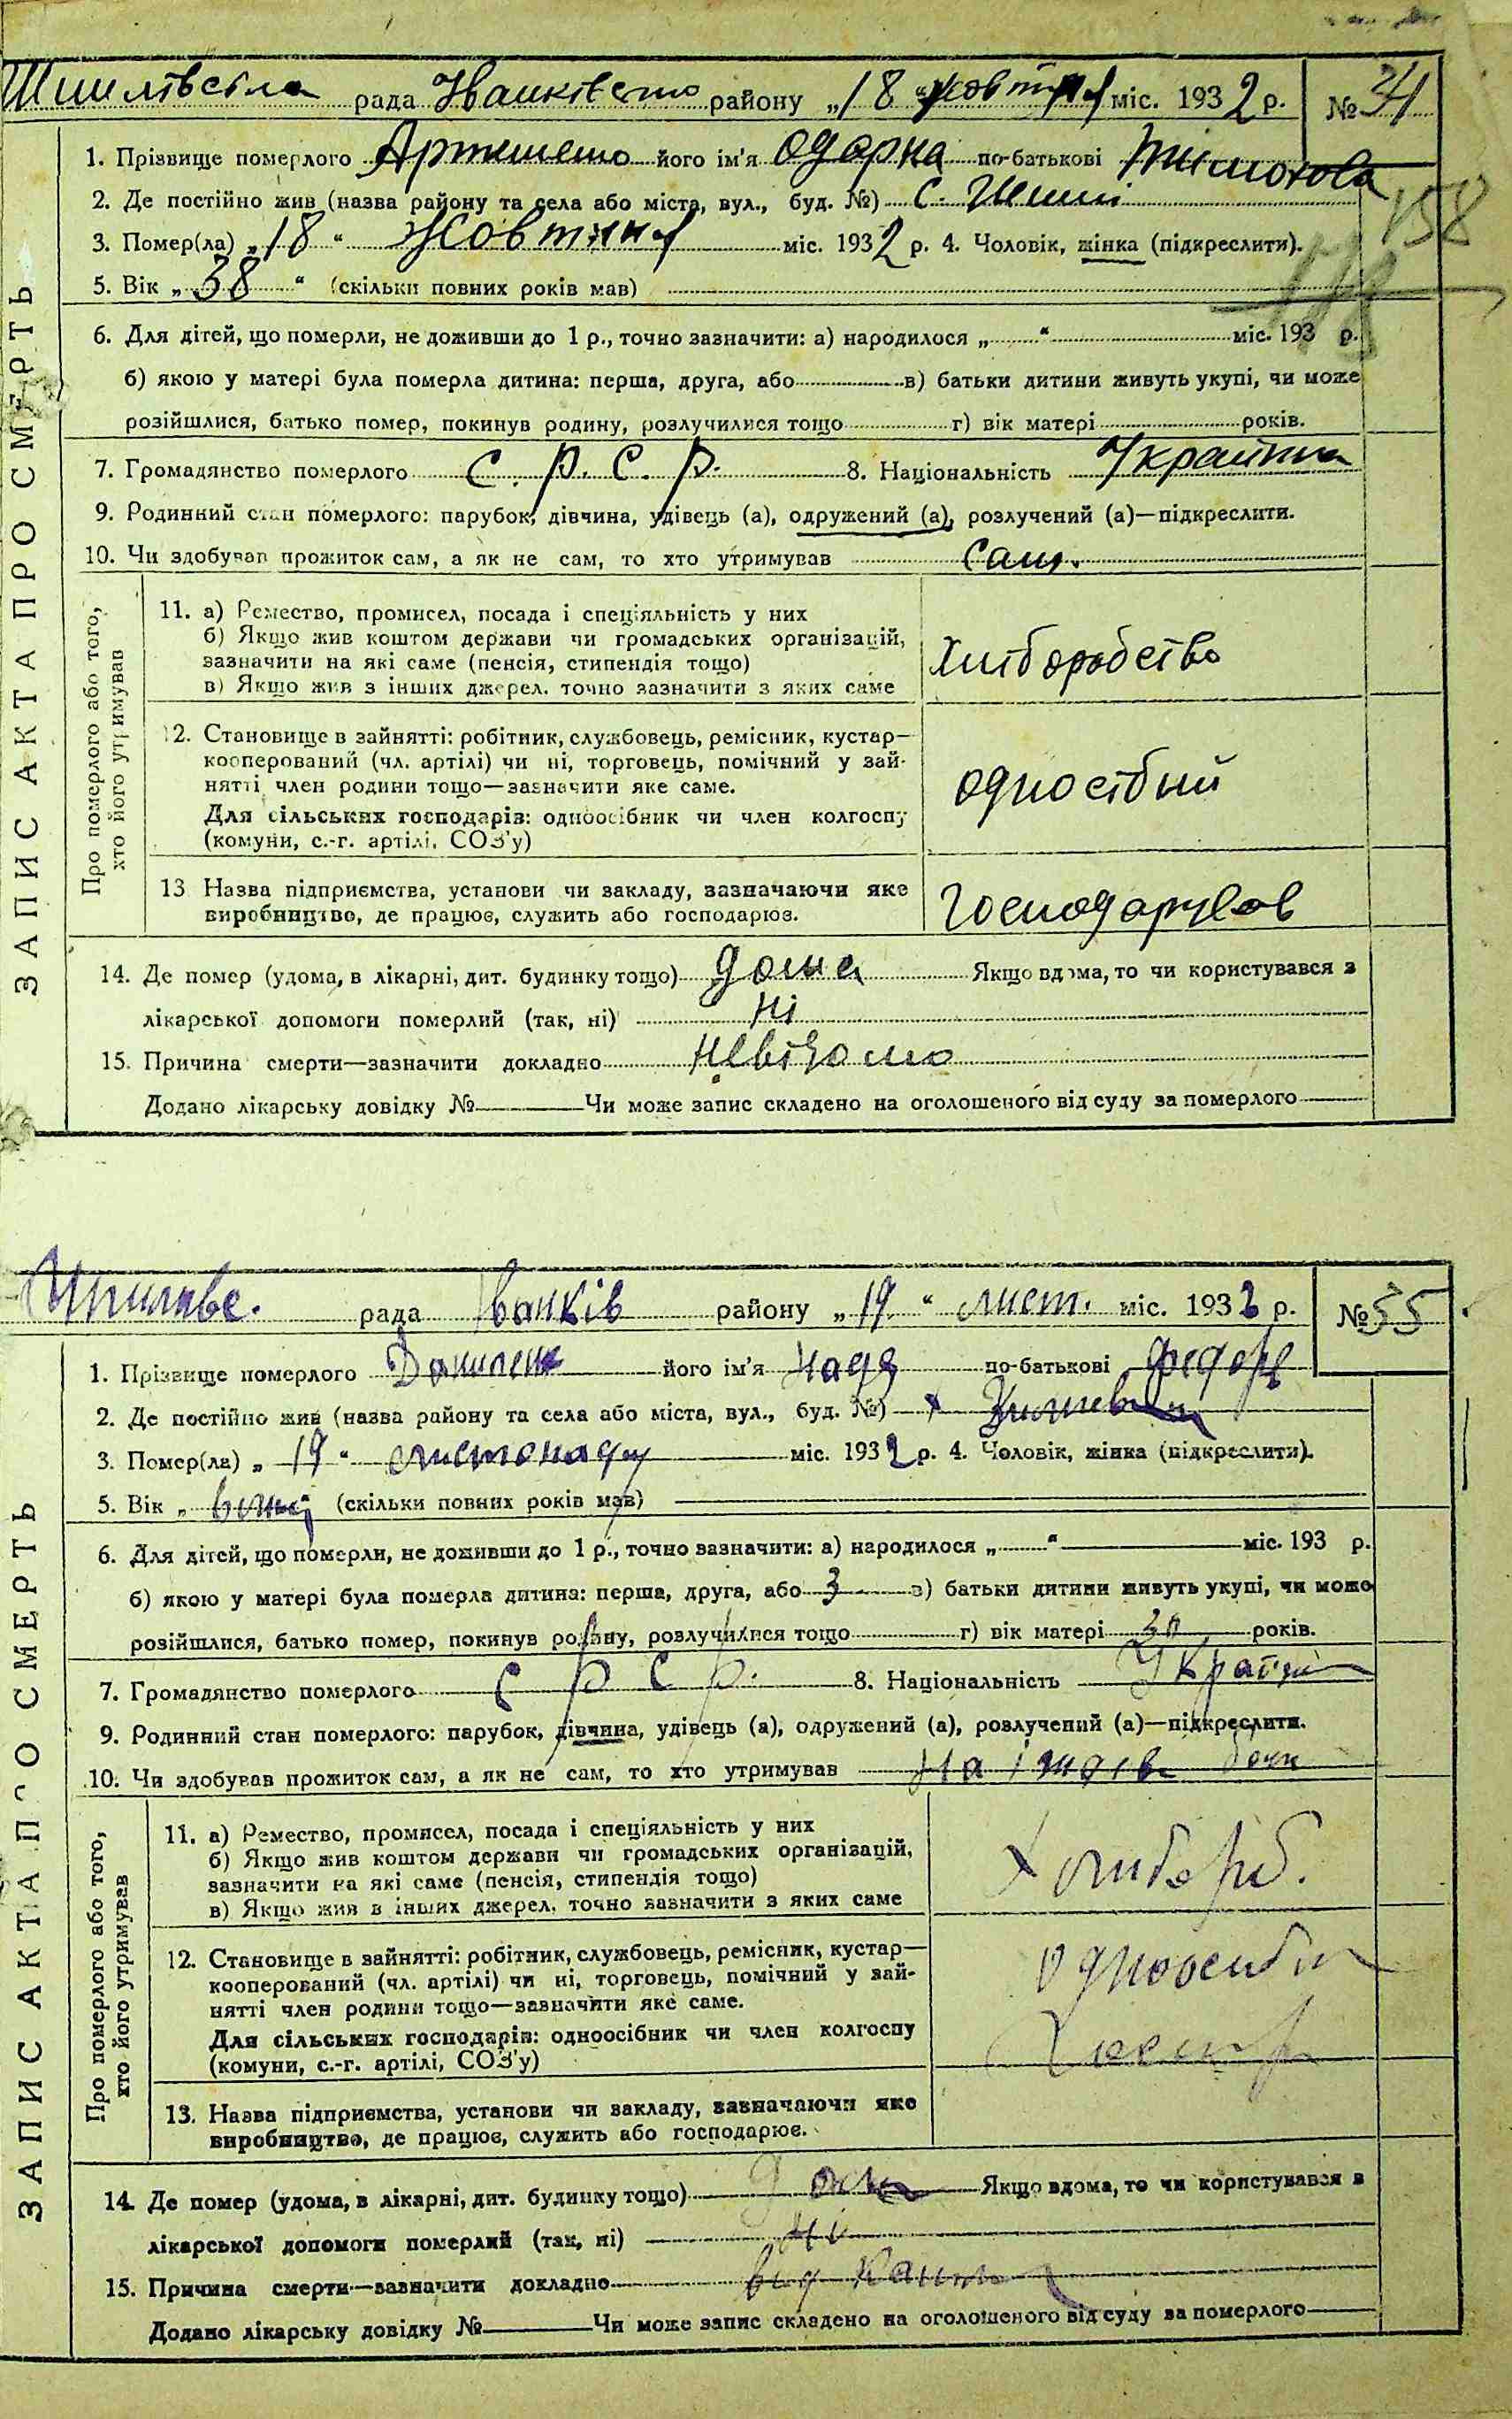 рада Іванківсько району „18“ жовтня міс. 1932 р. № 34
1. Прізвище померлого його ім'я Одарка по-батькові Тимохова
2. Де постійно жив (назва району та села або міста, вул., буд. №) с.
158
3. Помер(ла) „18“ Жовтня міс. 1932 р. 4. Чоловік, жінка (підкреслити).
5. Вік „38“ (скільки повних років мав)
6. Для дітей, що померли, не доживши до 1 р., точно зазначити: а) народилося „ “ міс. 193 р.
б) якою у матері була померла дитина: перша, друга, або в) батьки дитини живуть укупі, чи може
розійшлися, батько помер, покинув родину, розлучилися тощо г) вік матері років.
7. Громадянство померлого С.Р.С.Р. 8. Національність
9. Родинний стан померлого: парубок, дівчина, удівець (а), одружений (а), розлучений (а)—підкреслити.
10. Чи здобував прожиток сам, а як не сам, то хто утримував сам.
ЗАПИС АКТА ПРО СМЕРТЬ
Про померлого або того, хто його утримував
11. а) Ремество, промисел, посада і спеціяльність у них
б) Якщо жив коштом держави чи громадських організацій,
зазначити на які саме (пенсія, стипендія тощо)
в) Якщо жив з інших джерел, точно зазначити з яких саме
Хліборобство
12. Становище в зайнятті: робітник, службовець, ремісник, кустар—
кооперований (чл. артілі) чи ні, торговець, помічний у зай-
нятті член родини тощо—зазначити яке саме.
Для сільських господарів: одноосібник чи член колгоспу
(комуни, с.-г. артілі, СОЗ'у)
13 Назва підприємства, установи чи закладу, зазначаючи яке
виробництво, де працює, служить або господарює.
Господарував
14. Де помер (удома, в лікарні, дит. будинку тощо) дома Якщо вдома, то чи користувався з
лікарської допомоги померлий (так, ні) ні
15. Причина смерти—зазначити докладно невідомо
Додано лікарську довідку № Чи може запис складено на оголошеного від суду за померлого
рада Іванків району „19“ лист. міс. 1932 р. № 35
1. Прізвище померлого його ім'я Надя по-батькові Федор
2. Де постійно жив (назва району та села або міста, вул., буд. №)
3. Помер(ла) „19“ листопаду міс. 1932 р. 4. Чоловік, жінка (підкреслити).
5. Вік „ “ (скільки повних років мав)
6. Для дітей, що померли, не доживши до 1 р., точно зазначити: а) народилося „ “ міс. 193 р.
б) якою у матері була померла дитина: перша, друга, або 3 в) батьки дитини живуть укупі, чи може
розійшлися, батько помер, покинув родину, розлучилися тощо г) вік матері років.
7. Громадянство померлого С Р С Р. 8. Національність
9. Родинний стан померлого: парубок, дівчина, удівець (а), одружений (а), розлучений (а)—підкреслити.
10. Чи здобував прожиток сам, а як не сам, то хто утримував На
ЗАПИС АКТА ПРО СМЕРТЬ
Про померлого або того, хто його утримував
11. а) Ремество, промисел, посада і спеціяльність у них
б) Якщо жив коштом держави чи громадських організацій,
зазначити на які саме (пенсія, стипендія тощо)
в) Якщо жив з інших джерел, точно зазначити з яких саме
12. Становище в зайнятті: робітник, службовець, ремісник, кустар—
кооперований (чл. артілі) чи ні, торговець, помічний у зай-
нятті член родини тощо—зазначити яке саме.
Для сільських господарів: одноосібник чи член колгоспу
(комуни, с.-г. артілі, СОЗ'у)
13. Назва підприємства, установи чи закладу, зазначаючи яке
виробництво, де працює, служить або господарює.
14. Де помер (удома, в лікарні, дит. будинку тощо) Якщо вдома, то чи користувався з
лікарської допомоги померлий (так, ні) ні
15. Причина смерти—зазначити докладно від
Додано лікарську довідку № Чи може запис складено на оголошеного від суду за померлого